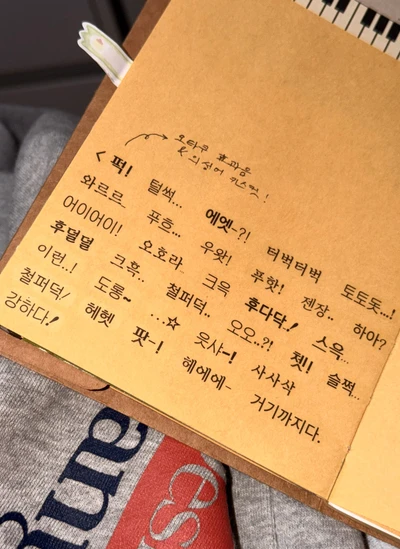 오타쿠 효과음
& 의성어 키스컷!
< 퍽! 털썩... 에엣-?! 터벅터벅 토토톳...!
와르르 푸흐... 우왓! 푸핫! 젠장.. 하아?
어이어이! 오호라 크윽 후다닥! 스윽...
후덜덜 크흑.. 철퍼덕.. 오오..?! 쳇! 슬쩍...
이런..! 도롱~ ...☆ 읏샤-! 사사삭
철퍼덕/ 헤헷 팟-! 헤에에- 거기까지다.
강하다!